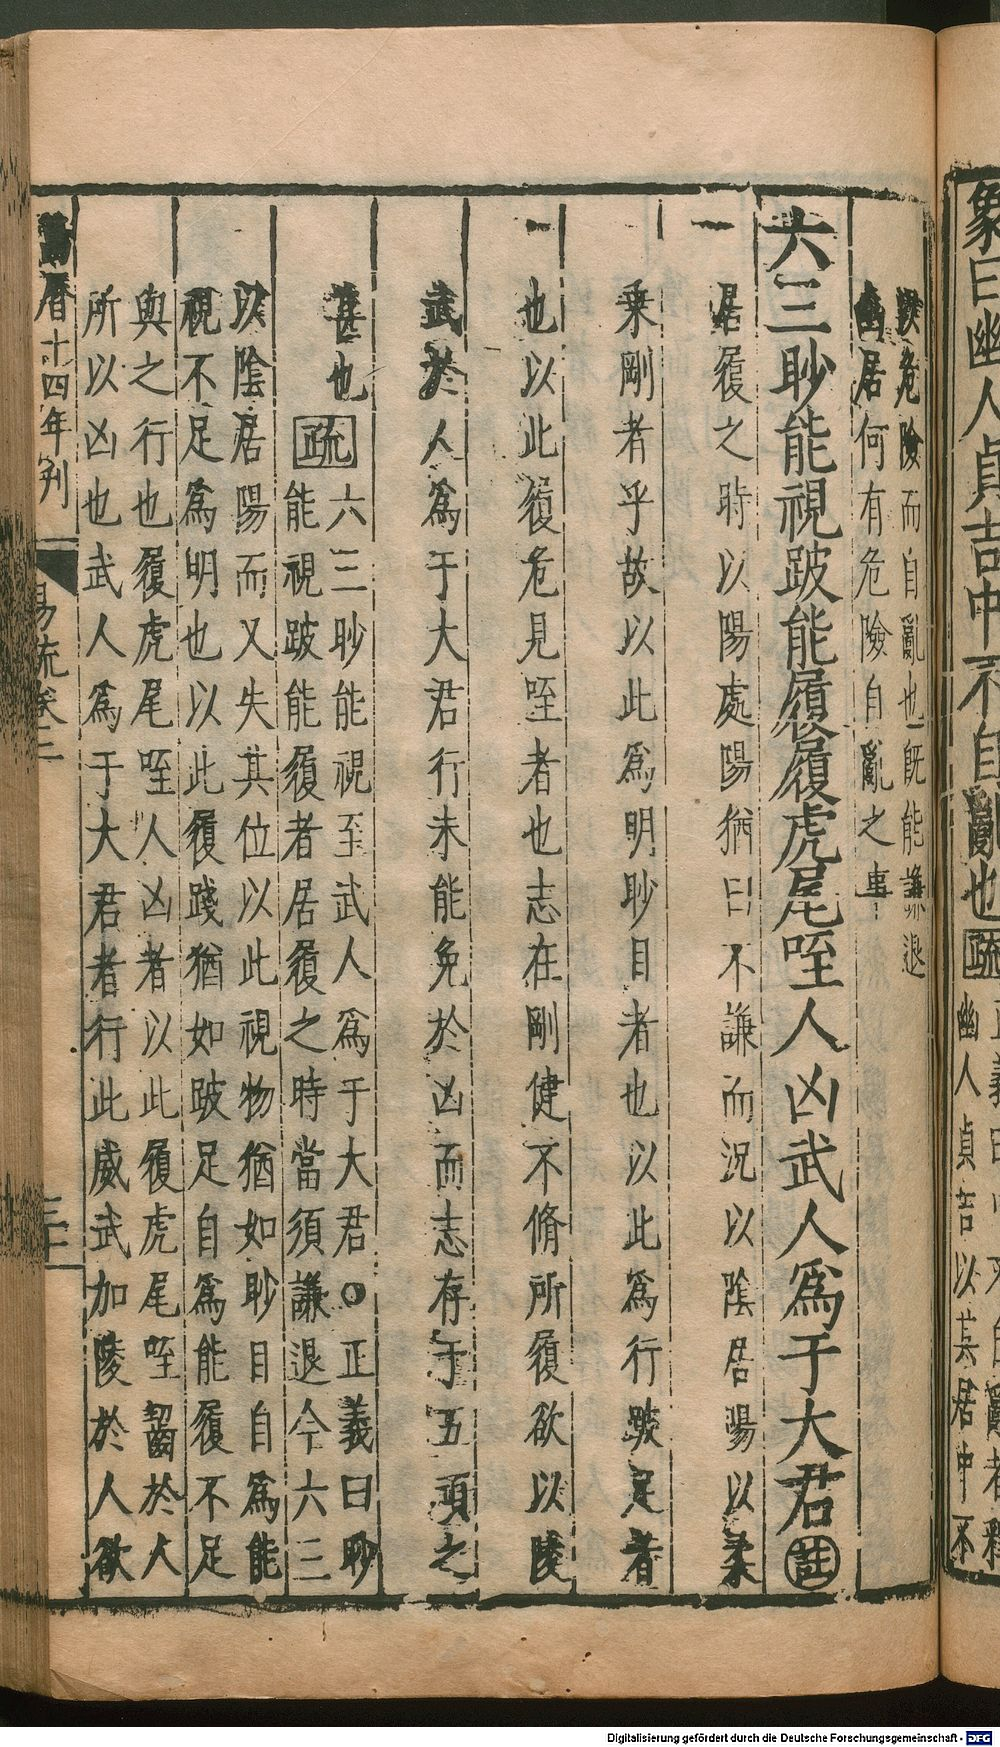 象曰幽人貞吉中不自亂也疏
幽人貞吉以其居中不
以危險而自亂也既能謙退
幽居何有危險自亂之事
六三眇能視跛能履履虎尾咥人凶武人爲于大君註
居履之時以陽處陽猶曰不謙而況以陰居陽以柔
乗剛者乎故以此爲明眇目者也以此爲行跛足者
也以此履危見咥者也志在剛健不脩所履欲以陵
武於人爲于大君行未能免於凶而志存于五頑之
甚也疏六三眇能視至武人爲于大君○正義曰眇
能視跛能履者居履之時當須謙退今六三
以陰居陽而又失其位以此視物猶如眇目自爲能
視不足爲明也以此履踐猶如跛足自爲能履不足
與之行也履虎尾咥人凶者以此履虎尾咥齧於人
所以凶也武人爲于大君者行此威武加陵於人欲
曆十四年刋
易疏卷二
三十二
Digitalisierung gefördert durch die Deutsche Forschungsgemeinschaft - DFG